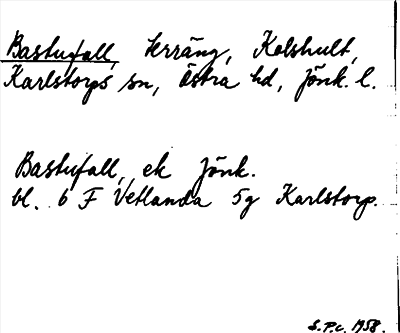 Bastufall, terräng, Kolshult,
Karlstorps sn, Östra hd, Jönk. l.
Bastufall, ek Jönk.
bl. 6 F Vetlanda 5g Karlstorp.
S.P.c. 1958.